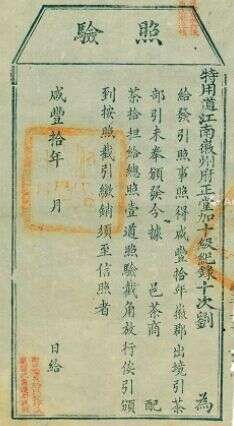 驗照
特用道江南徽州府正堂加十級紀錄十次劉 為
給發引照事照得咸豐拾年徽郡出境引茶
部引未奉頒發分據 邑茶商 配
茶拾担給總照壹道照驗截角放行俟引頒
到按照截引繳銷須至信照者
咸豐拾年 月 日給